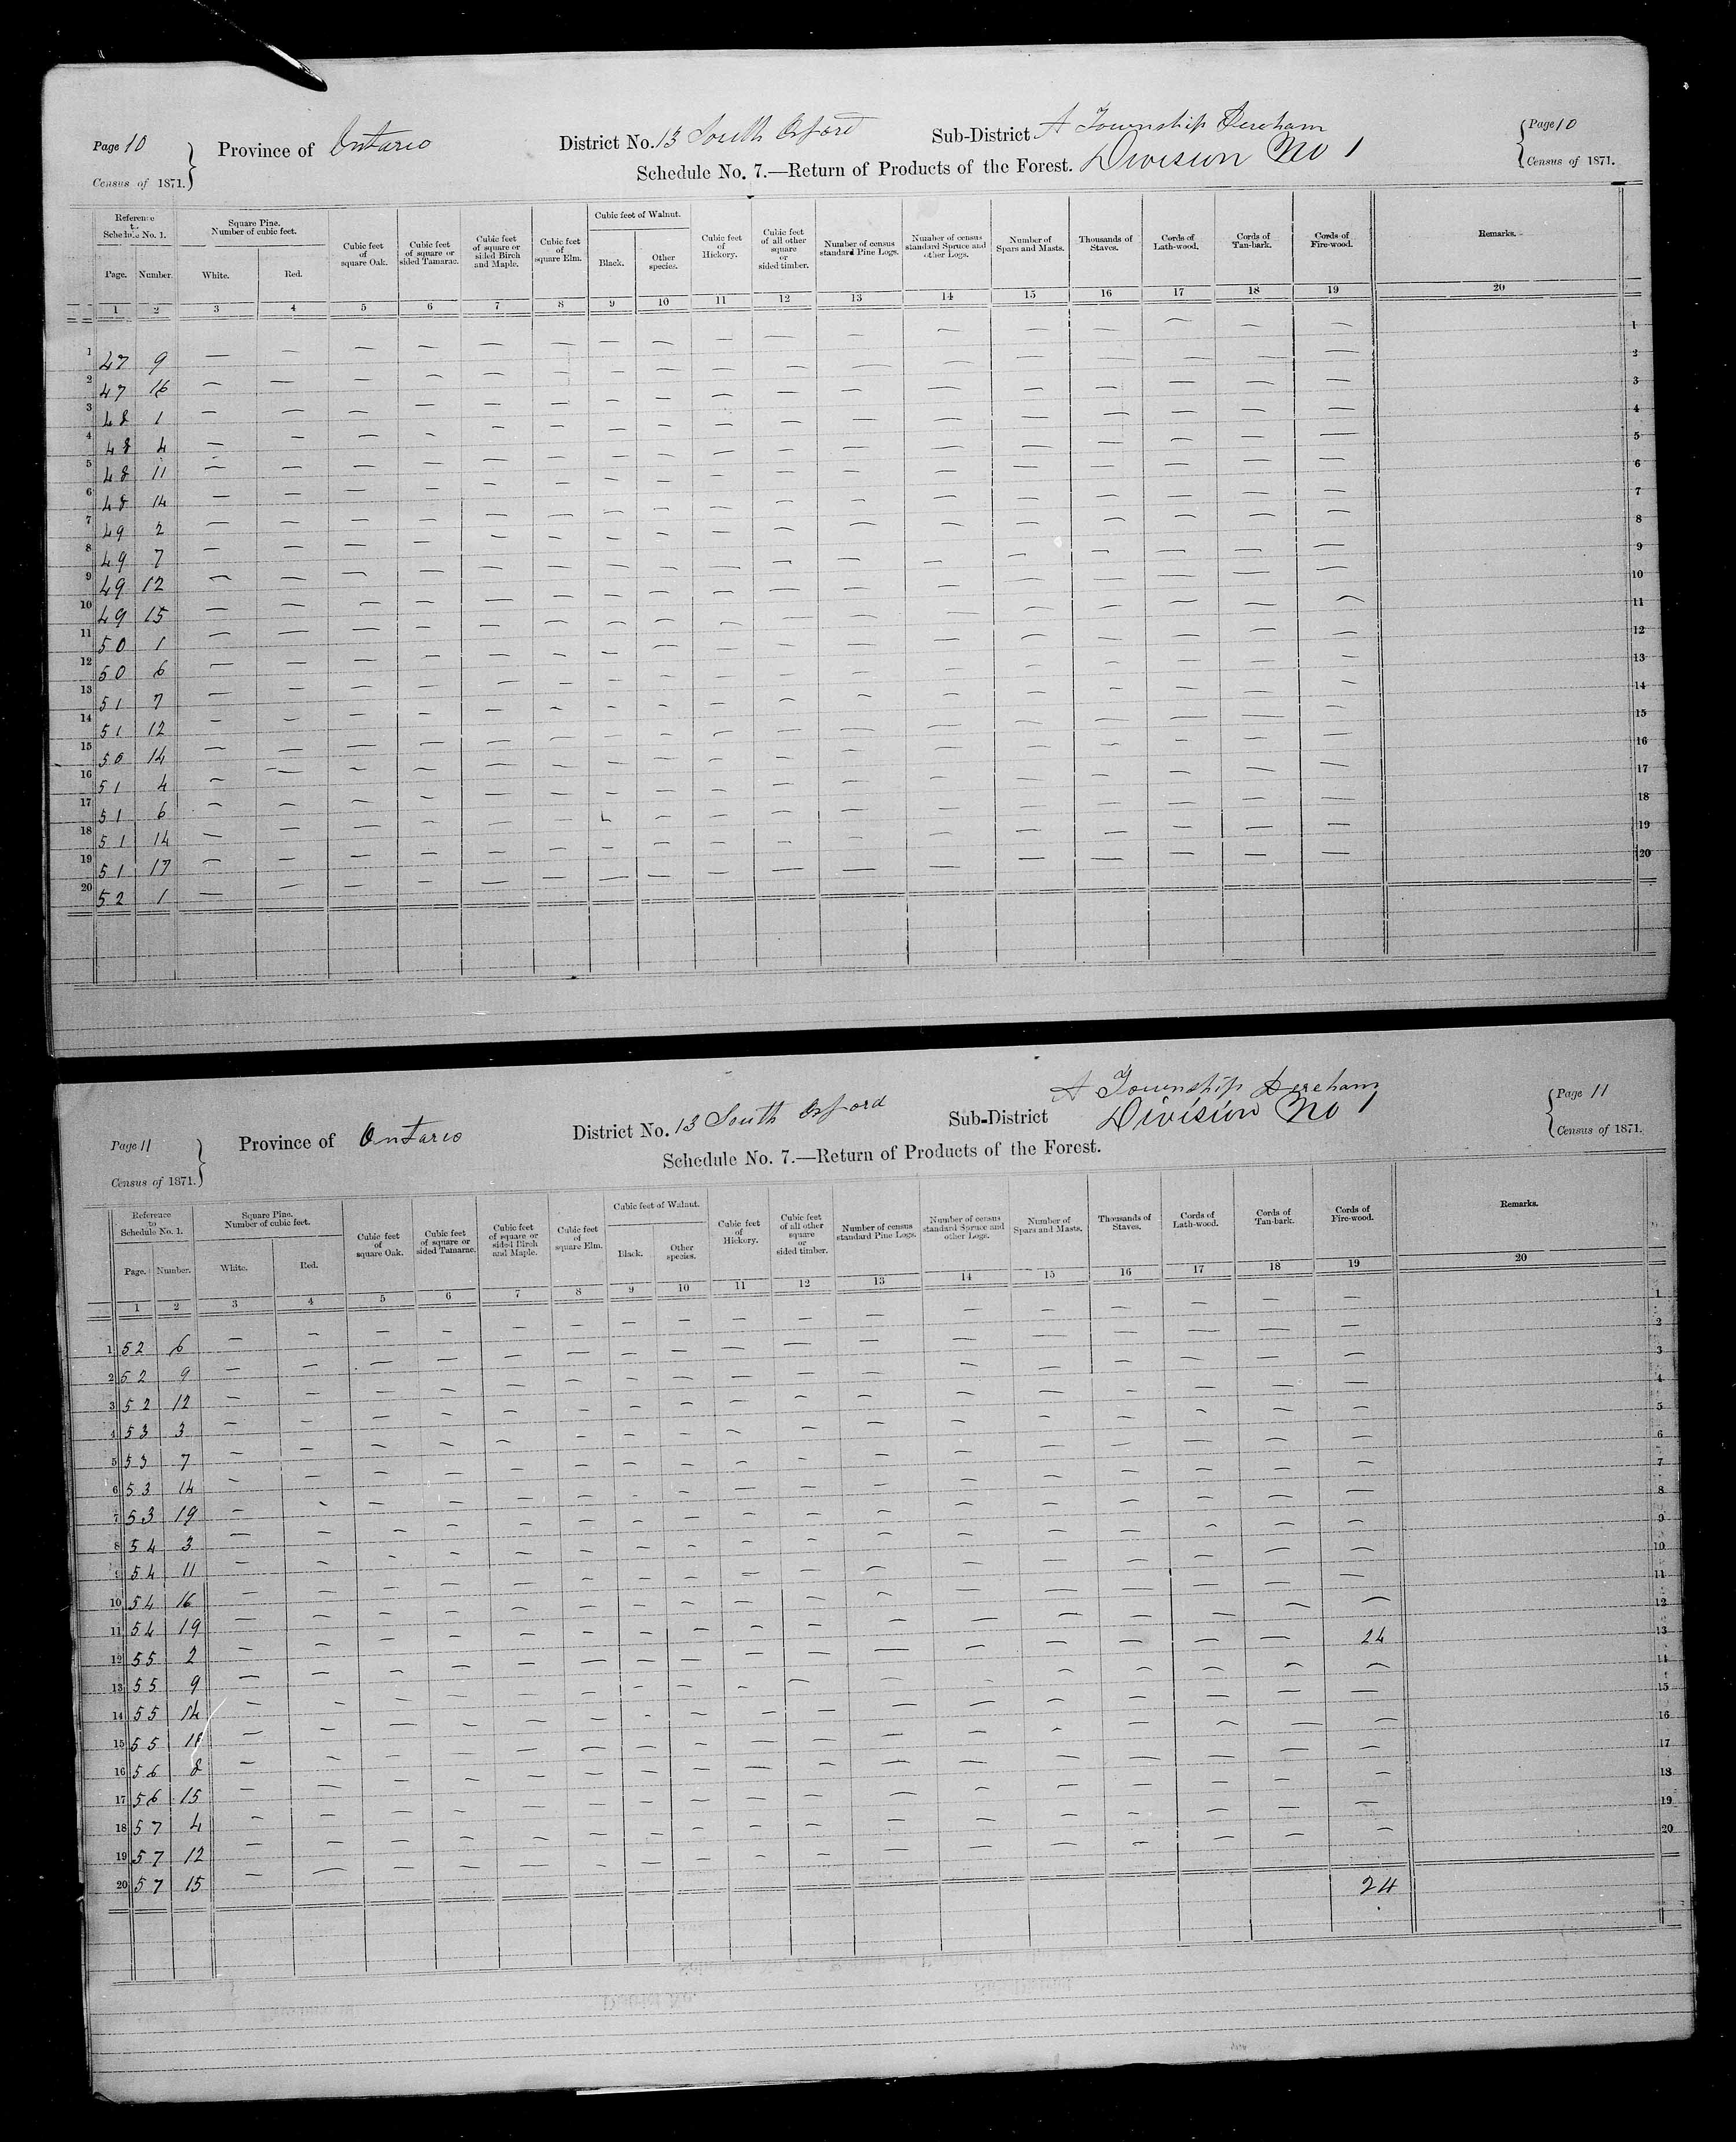 Page 10
Census of 1871.
Province of Ontario
District No. 13 South Oxford
Sub-District A Township Dereham
Division No 1
Schedule No. 7.—Return of Products of the Forest.
Page 10
Census of 1871.
Reference to Schedule No. 1.
Square Pine. Number of cubic feet.
Cubic feet of square Oak.
Cubic feet of square or sided Tamarac.
Cubic feet of square or sided Birch and Maple.
Cubic feet of square Elm.
Cubic feet of Walnut.
Cubic feet of Hickory.
Cubic feet of all other square or sided timber.
Number of census standard Pine Logs.
Number of census standard Spruce and other Logs.
Number of Spars and Masts.
Thousands of Staves.
Cords of Lath-wood.
Cords of Tan-bark.
Cords of Fire-wood.
Remarks.
Page. Number. White. Red. Black. Other species.
1 2 3 4 5 6 7 8 9 10 11 12 13 14 15 16 17 18 19 20
1 47 9 — — — — — — — — — — — — — — — — — 1
2 47 16 — — — — — — — — — — — — — — — — — 2
3 48 1 — — — — — — — — — — — — — — — — — 3
4 48 4 — — — — — — — — — — — — — — — — — 4
5 48 11 — — — — — — — — — — — — — — — — — 5
6 48 14 — — — — — — — — — — — — — — — — — 6
7 49 2 — — — — — — — — — — — — — — — — — 7
8 49 7 — — — — — — — — — — — — — — — — — 8
9 49 12 — — — — — — — — — — — — — — — — — 9
10 49 15 — — — — — — — — — — — — — — — — — 10
11 50 1 — — — — — — — — — — — — — — — — — 11
12 50 6 — — — — — — — — — — — — — — — — — 12
13 51 7 — — — — — — — — — — — — — — — — — 13
14 51 12 — — — — — — — — — — — — — — — — — 14
15 50 14 — — — — — — — — — — — — — — — — — 15
16 51 4 — — — — — — — — — — — — — — — — — 16
17 51 6 — — — — — — — — — — — — — — — — — 17
18 51 14 — — — — — — — — — — — — — — — — — 18
19 51 17 — — — — — — — — — — — — — — — — — 19
20 52 1 — — — — — — — — — — — — — — — — — 20
Page 11
Census of 1871.
Province of Ontario
District No. 13 South Oxford
Sub-District A Township Dereham
Division No 1
Schedule No. 7.—Return of Products of the Forest.
Page 11
Census of 1871.
Reference to Schedule No. 1.
Square Pine. Number of cubic feet.
Cubic feet of square Oak.
Cubic feet of square or sided Tamarac.
Cubic feet of square or sided Birch and Maple.
Cubic feet of square Elm.
Cubic feet of Walnut.
Cubic feet of Hickory.
Cubic feet of all other square or sided timber.
Number of census standard Pine Logs.
Number of census standard Spruce and other Logs.
Number of Spars and Masts.
Thousands of Staves.
Cords of Lath-wood.
Cords of Tan-bark.
Cords of Fire-wood.
Remarks.
Page. Number. White. Red. Black. Other species.
1 2 3 4 5 6 7 8 9 10 11 12 13 14 15 16 17 18 19 20
1 52 6 — — — — — — — — — — — — — — — — — 1
2 52 9 — — — — — — — — — — — — — — — — — 2
3 52 12 — — — — — — — — — — — — — — — — — 3
4 53 3 — — — — — — — — — — — — — — — — — 4
5 53 7 — — — — — — — — — — — — — — — — — 5
6 53 14 — — — — — — — — — — — — — — — — — 6
7 53 19 — — — — — — — — — — — — — — — — — 7
8 54 3 — — — — — — — — — — — — — — — — — 8
9 54 11 — — — — — — — — — — — — — — — — — 9
10 54 16 — — — — — — — — — — — — — — — — — 10
11 54 19 — — — — — — — — — — — — — — — — — 11
12 55 2 — — — — — — — — — — — — — — — — — 12
13 55 9 — — — — — — — — — — — — — — — — 24 13
14 55 14 — — — — — — — — — — — — — — — — — 14
15 55 — — — — — — — — — — — — — — — — — 15
16 56 8 — — — — — — — — — — — — — — — — — 16
17 56 15 — — — — — — — — — — — — — — — — — 17
18 57 4 — — — — — — — — — — — — — — — — — 18
19 57 12 — — — — — — — — — — — — — — — — — 19
20 57 15 — — — — — — — — — — — — — — — — — 20
24